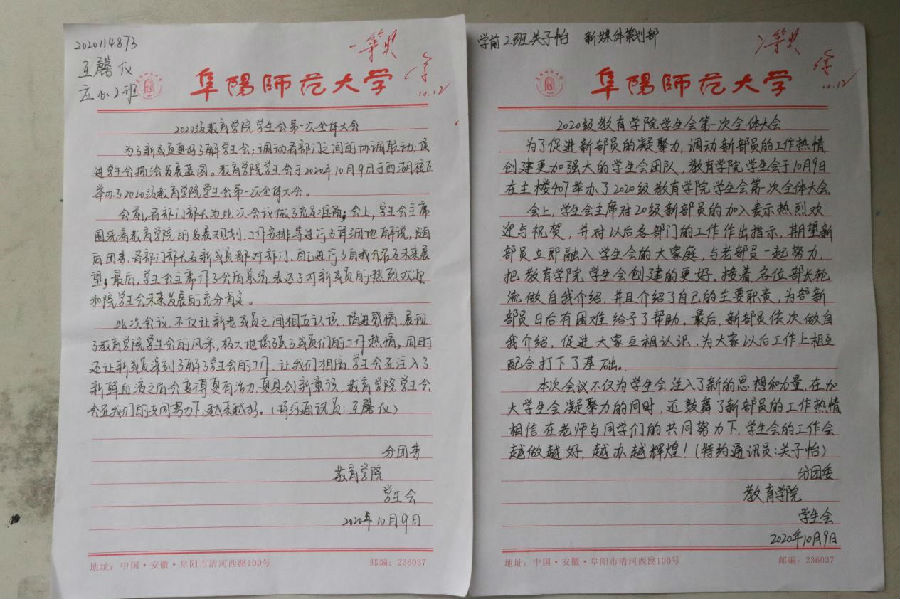 2020114873
一等奖
10.12
阜阳师范大学
2020级教育学院学生会第一次全体大会
为了新成员更好了解学生会,调动各部门之间的协调联动,促
进学生会描绘发展蓝图,教育学院学生会于2020年10月9日于西湖校区
举办了2020级教育学院学生会第一次全体大会。
会前,各部门部长为此次会议做了充足准备;会上,学生会主席
围绕着教育学院的发展规划,工作安排等进行了立鲜明地解说,随
后团委、各部门部长及新成员都对部门、自己进行了自我介绍及未来展
望;最后,学生会主席作了会内总结表达了对新成员的热烈欢迎
和院学生会未来发展的充分肯定。
此次会议,不仅让新老成员之间相互认识,促进了感情,展现
了教育学院学生会的风采,极大地提高了成员们的工作热情,同时
还让新成员看到了解了学生会的工作,让我们相信,学生会在注入了
新鲜血液之后会变得更有活力,更具创新意识,教育学院学生会
会在我们的共同努力下,越来越好。(特约通讯员:王馨仪)
分团委
教育学院
学生会
2020年10月9日
地址:中国·安徽·阜阳市清河西路100号 邮编:236037
学前2班 关子怡 新媒体策划部
二等奖
10.12
阜阳师范大学
2020级教育学院学生会第一次全体大会
为了促进新部员的凝聚力,调动新部员的工作热情
创建更加强大的学生会团队,教育学院学生会于10月9日
在土楼407举办了2020级教育学院学生会第一次全体大会
会上,学生会主席对20级新部员的加入表示热烈欢
迎与祝贺,并对以后各部门的工作作出指示,期望新
部员立即融入学生会的大家庭,与老部员一起努力,
把教育学院学生会创建的更好,接着,各位部长轮
流做自我介绍,并且介绍了自己的主要职责,为部新
部员日后有困难给予了帮助,最后,新部员依次做自
我介绍,促进大家互相认识,为大家以后工作上相互
配合打下了基础。
本次会议不仅为学生会注入了新的思想和力量,在加
大学生会凝聚力的同时,还鼓舞了新部员的工作热情
相信在老师与同学们的共同努力下,学生会的工作会
越做越好,越办越辉煌!(特约通讯员:关子怡)
分团委
教育学院
学生会
2020年10月9日
地址:中国·安徽·阜阳市清河西路100号 邮编:236037